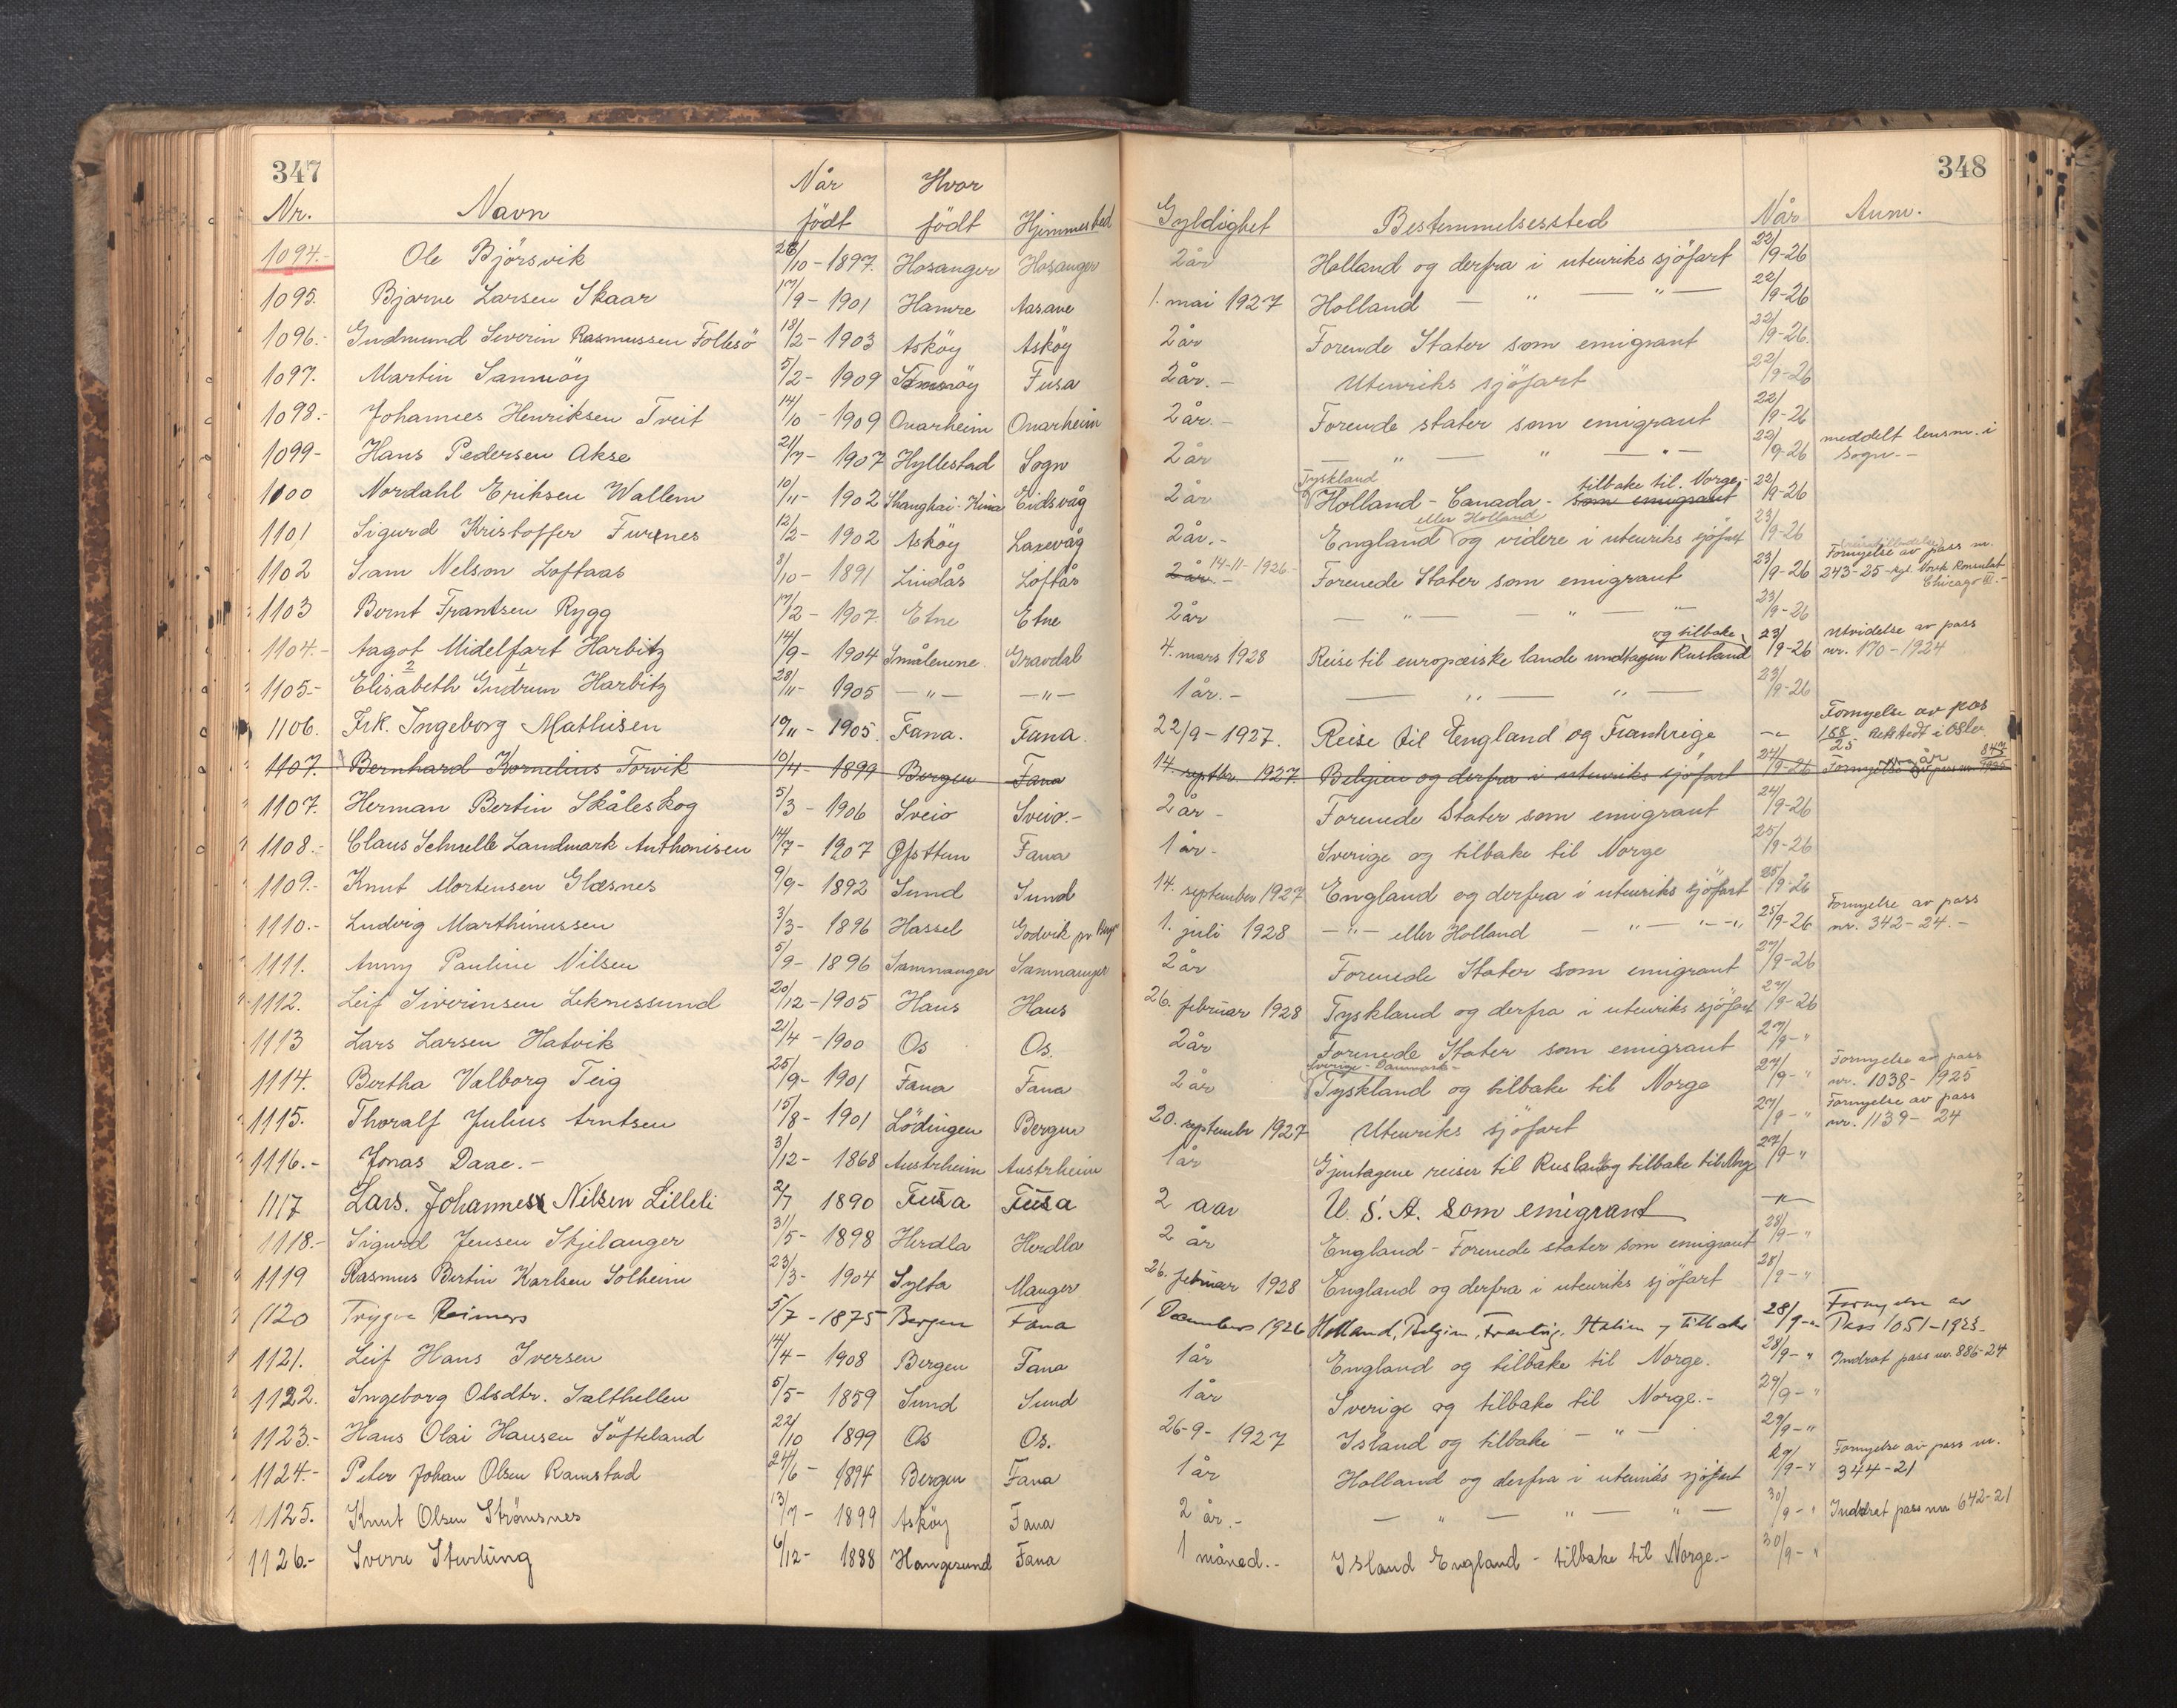 347
348
Nr. Navn Når födt Hvor födt Hjemmested Gyldighet Bestemmelsessted Når Anm.
1094.- Ole Björsvik 28/10 - 1897. Hosanger Hosanger 2 år Holland og derfra i utenriks sjöfart 22/9-26
1095. Bjarne Larsen Skaar 17/9 - 1901 Hamre Aasane 1. mai 1927 Holland — " — " — 22/9-26
1096.- Gudmund Severin Rasmussen Follesö 18/2 - 1903 Asköy Asköy 2 år Forende Stater som emigrant 22/9-26.
1097. Martin Samnöy 5/2 - 1909 Samnöy Fusa 2 år. - Utenriks sjöfart 22/9-26
1098.- Johannes Henriksen Tveit 14/10 - 1909 Onarheim Onarheim 2 år. - Forende stater som emigrant 22/9-26
1099- Hans Pedersen Akse 21/7 - 1907 Hyllestad Sogn 2 år — " — " — " — 22/9-26 meddelt lensm. i Sogn.-
1100 Nordahl Eriksen Wallem 10/11 - 1902 Shanghai-Kina Eidsvåg 2 år Tyskland Holland - Canada - som emigrant tilbake til Norge.- 22/9-26
1101 Sigurd Kristoffer Furnes 12/2 - 1902 Asköy Laxevåg 2 år.- England eller Holland og videre i utenriks sjöfart 23/9-26
1102 Sam Nelson Loftaas 8/10 - 1891 Lindås Loftås 2 år.- 14-11-1926.- Forenede Stater som emigrant 23/9-26 Fornyelse av pass nr. 243-25 - kgl. Norsk Konsulat Chicago Ill.-
1103 Bernt Frantsen Rygg 17/12 - 1907 Etne Etne 2 år — " — " — " 23/9-26
1104.- Aagot Midelfart Harbitz 14/9 - 1904 Smålenene Gravdal 4. mars 1928 Reise til europæiske lande undtagen Rusland og tilbake 23/9-26 Utvidelse av pass nr. 170-1924
1105.- Elisabeth 2 Gudrun 1 Harbitz 28/11 - 1905 — " — — " — 1 år.- — " — " — 23/9-26
1106. Frk. Ingeborg Mathisen 19/11 - 1905. Fana. Fana. 22/9-1927. Reise til England og Frankrige - " - Fornyelse av pas 158/25 utstedt i Oslo
1107. Bernhard Kornelius Torvik 10/4 - 1899 Bergen Fana 14. septbr. 1927. Belgien og derfra i utenriks sjöfart 24/9-26 Fornyelse av pass nr. 847/1925
1107. Herman Bertin Skåleskog 5/3 - 1906 Sveio Sveio.- 2 år - Forenede Stater som emigrant 24/9-26
1108.- Claus Schnelle Landmark Anthonisen 14/7 - 1907 Øfsttun Fana 1 år.- Sverige og tilbake til Norge 25/9-26
1109.- Knut Mortensen Glæsnes 9/9 - 1892 Sund Sund 14. september 1927 England og derfra i utenriks sjöfart 25/9-26
1110.- Ludvig Marthinussen 3/3 - 1896 Hassel Godvik pr Berg. 1. juli 1928 — " — eller Holland — " — " — " 25/9-26 Fornyelse av pass nr. 342-24.-
1111. Anny Pauline Nilsen 5/9 - 1896 Samnanger Samnanger 2 år Forenede Stater som emigrant 27/9-26
1112. Leif Siverinsen Leknessund 20/12 - 1905 Haus Haus 26. februar 1928 Tyskland og derfra i utenriks sjöfart 27/9-26
1113 Lars Larsen Hatvik 21/4 - 1900 Os Os. 2 år Forenede Stater som emigrant 27/9-"
1114. Bertha Valborg Teig 25/9 - 1901 Fana Fana 2 år Sverige - Danmark - Tyskland og tilbake til Norge 27/9-" Fornyelse av pass nr. 1038-1925
1115. Thoralf Julius Arntsen 15/8 - 1901 Lödingen Bergen 20. september 1927 Utenriks sjöfart 27/9-" Fornyelse av pass nr. 1139-24
1116.- Jonas Daae.- 3/12 - 1868 Austrheim Austrheim 1 år Gjentagene reiser til Rusland og tilbake til Norge 27/9-"
1117 Lars. Johannes Nilsen Lilleli 2/7 1890 Fusa Fusa 2 aar U. S. A. som emigrant — " —
1118.- Sigurd Jensen Skjelanger 31/5 - 1898 Herdla Herdla 2 år England - Forenede stater som emigrant 28/9-"
1119 Rasmus Bertin Karlsen Solheim 23/3 - 1904 Sylta Manger 26. februar 1928 England og derfra i utenriks sjöfart 28/9-"
1120 Trygve Reimers 5/7 - 1875 Bergen Fana 1 December 1926 Holland, Belgien, Frankrig, Italien og tilbake 28/9-" Fornyelse av Pass 1051-1923-
1121. Leif Hans Iversen 14/4 - 1908 Bergen Fana 1 år England og tilbake til Norge. 28/9-" Inddrat pass nr. 886-24
1122. Ingeborg Olsdtr. Salthellen 5/5 - 1859 Sund Sund 1 år Sverige og tilbake til Norge.- 29/9-"
1123.- Hans Olai Hansen Söfteland 22/10 1899 Os Os. 26-9-1927 Island og tilbake - " - 29/9-"
1124.- Peter Johan Olsen Ramstad 24/6 - 1894 Bergen Fana 1 år Holland og derfra i utenriks sjöfart 29/9-" Fornyelse av pass nr. 344-21
1125. Knut Olsen Strömsnes 13/7 - 1899 Asköy Fana 2 år.- — " — " — " — 30/9-" Inddret pass nr 642-21
1126.- Sverre Sturtung 6/12 - 1888 Haugesund Fana 1 måned.- Island England - tilbake til Norge.- 30/9-"